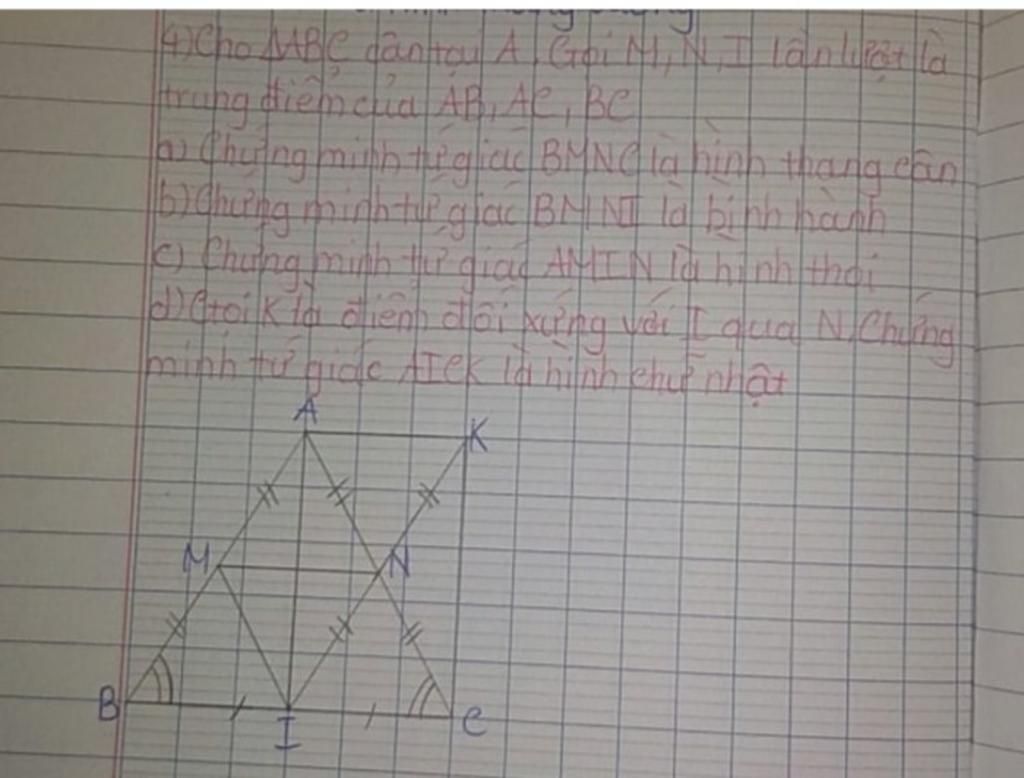 4) Cho ΔABC cân tại A. Gọi M, N, I lần lượt là
trung điểm của AB, AC, BC
a) Chứng minh tứ giác BMNC là hình thang cân
b) Chứng minh tứ giác BMNI là bình hành
c) Chứng minh tứ giác AMIN là hình thoi
d) Gọi K là điểm đối xứng với I qua N. Chứng
minh tứ giác AICK là hình chữ nhật
A
K
M
N
B
I
C